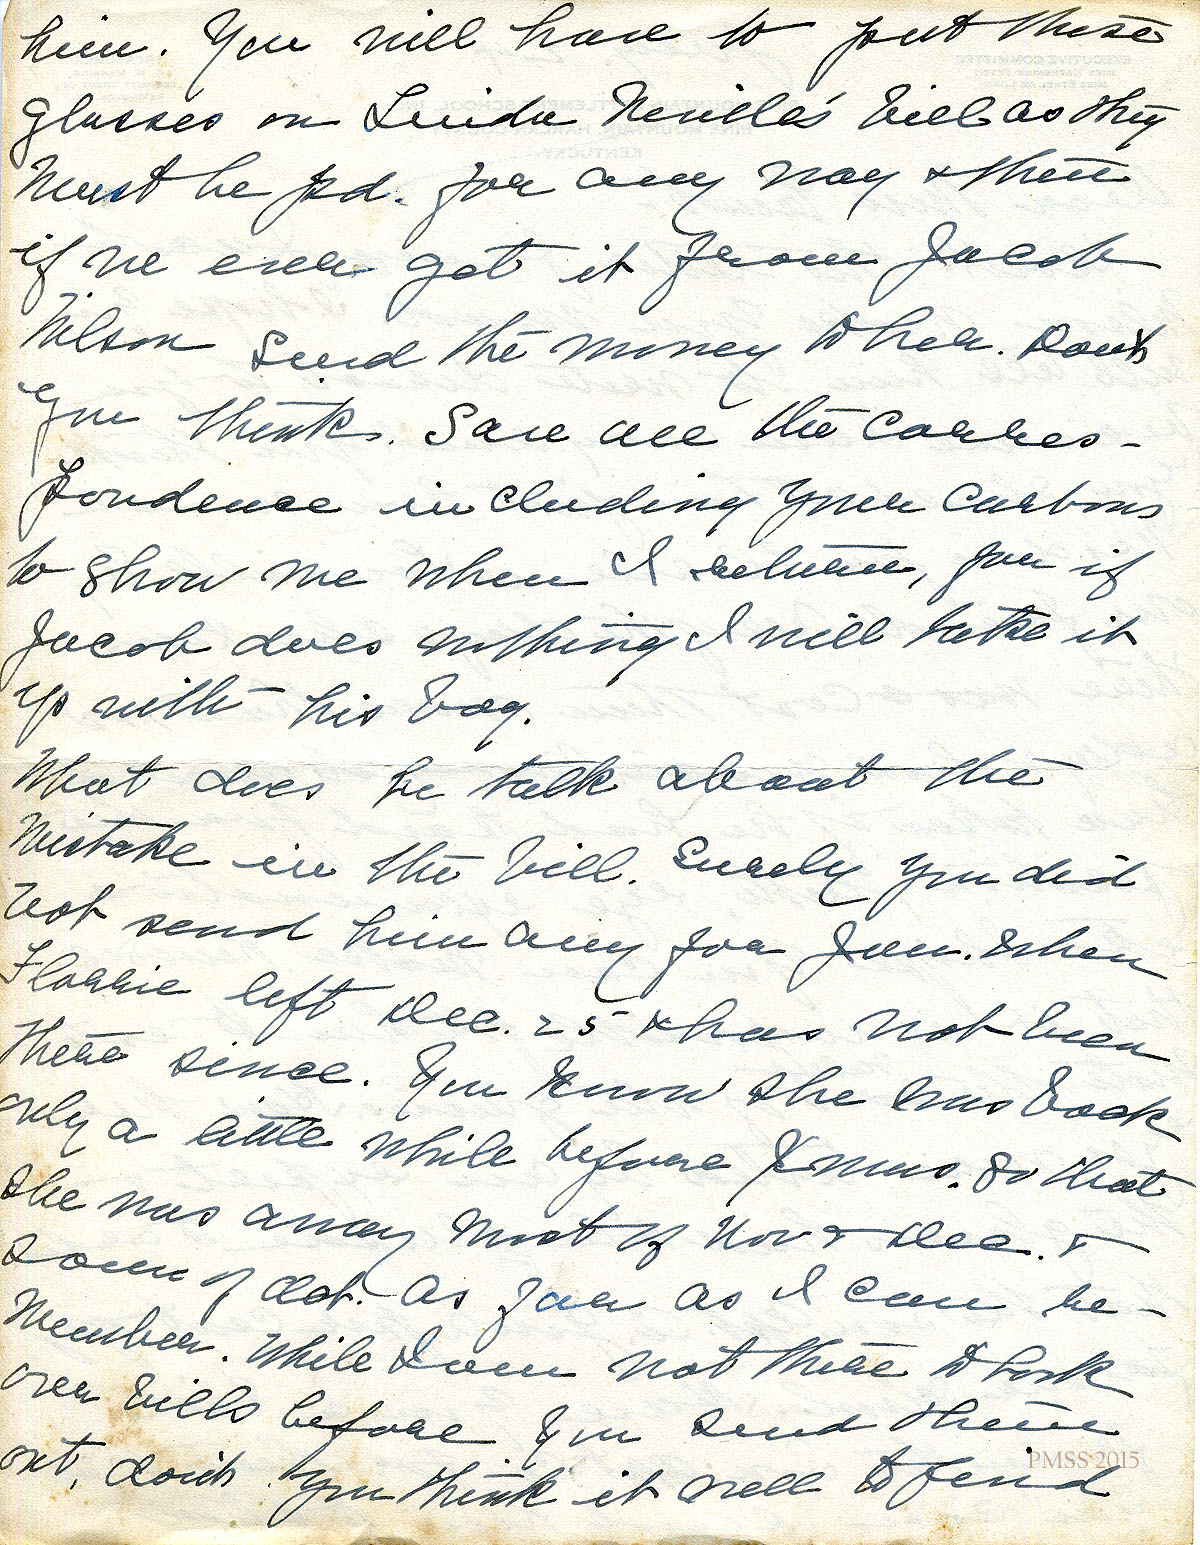 him. You will have to put these
glasses on Linda Neville's bill as they
must be pd. for any way & then
if we ever get it from Jacob
Wilson send the money to her. Don't
you think. Save all the corres-
pondence including your carbons
to show me when I return, for if
Jacob does nothing I will take it
up with his boy.
What does he talk about the
mistake in the bill. Surely you did
not send him any for Jan. when
Florrie left Dec. 25 & has not been
there since. You know she was back
only a little while before Xmas. So that
she was away most of Nov & Dec. &
some of Oct. as far as I can re-
member. While I am not there to look
over bills before you send them
out, don't you think it well to send
PMSS 2015